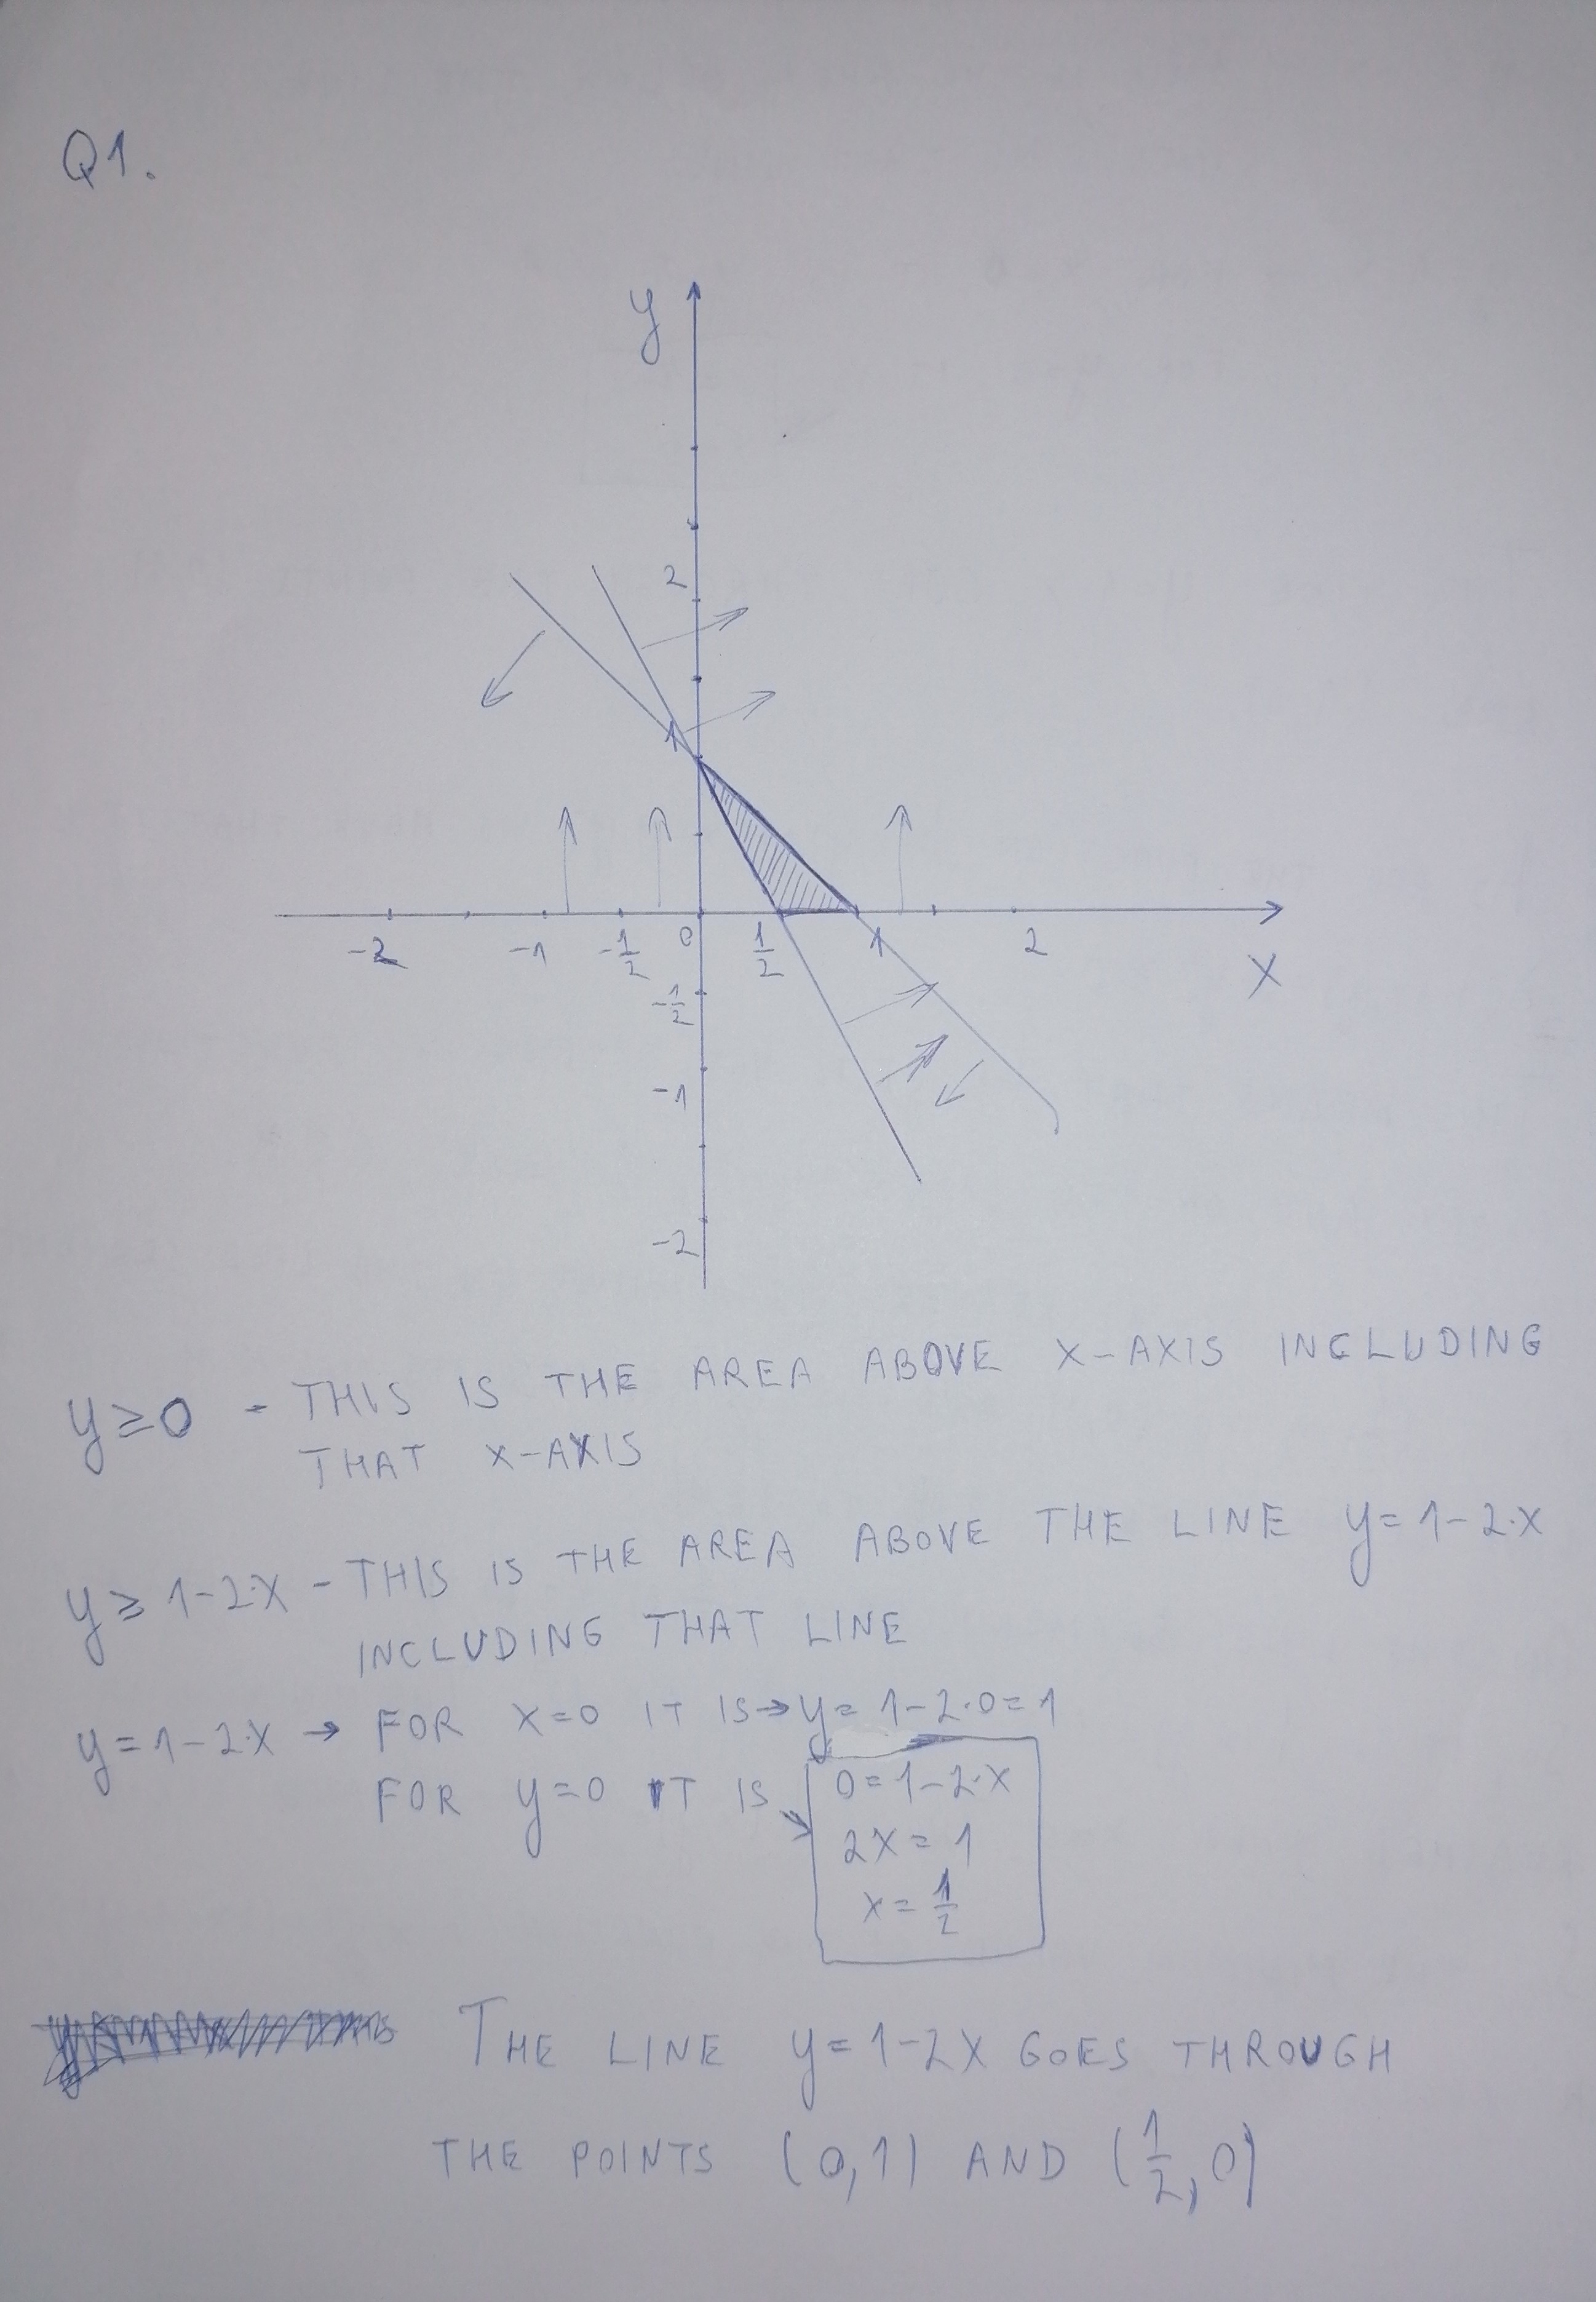 Q1.
y
2
1
-2 -1 -1/2 0 1/2 1 2
x
-1/2
-1
-2
y≥0 - THIS IS THE AREA ABOVE X-AXIS INCLUDING
THAT X-AXIS
y≥1-2·x - THIS IS THE AREA ABOVE THE LINE y=1-2·x
INCLUDING THAT LINE
y=1-2·x → FOR x=0 IT IS → y=1-2·0=1
FOR y=0 IT IS → 0=1-2·x
2x=1
x=1/2
THE LINE y=1-2x GOES THROUGH
THE POINTS (0,1) AND (1/2,0)